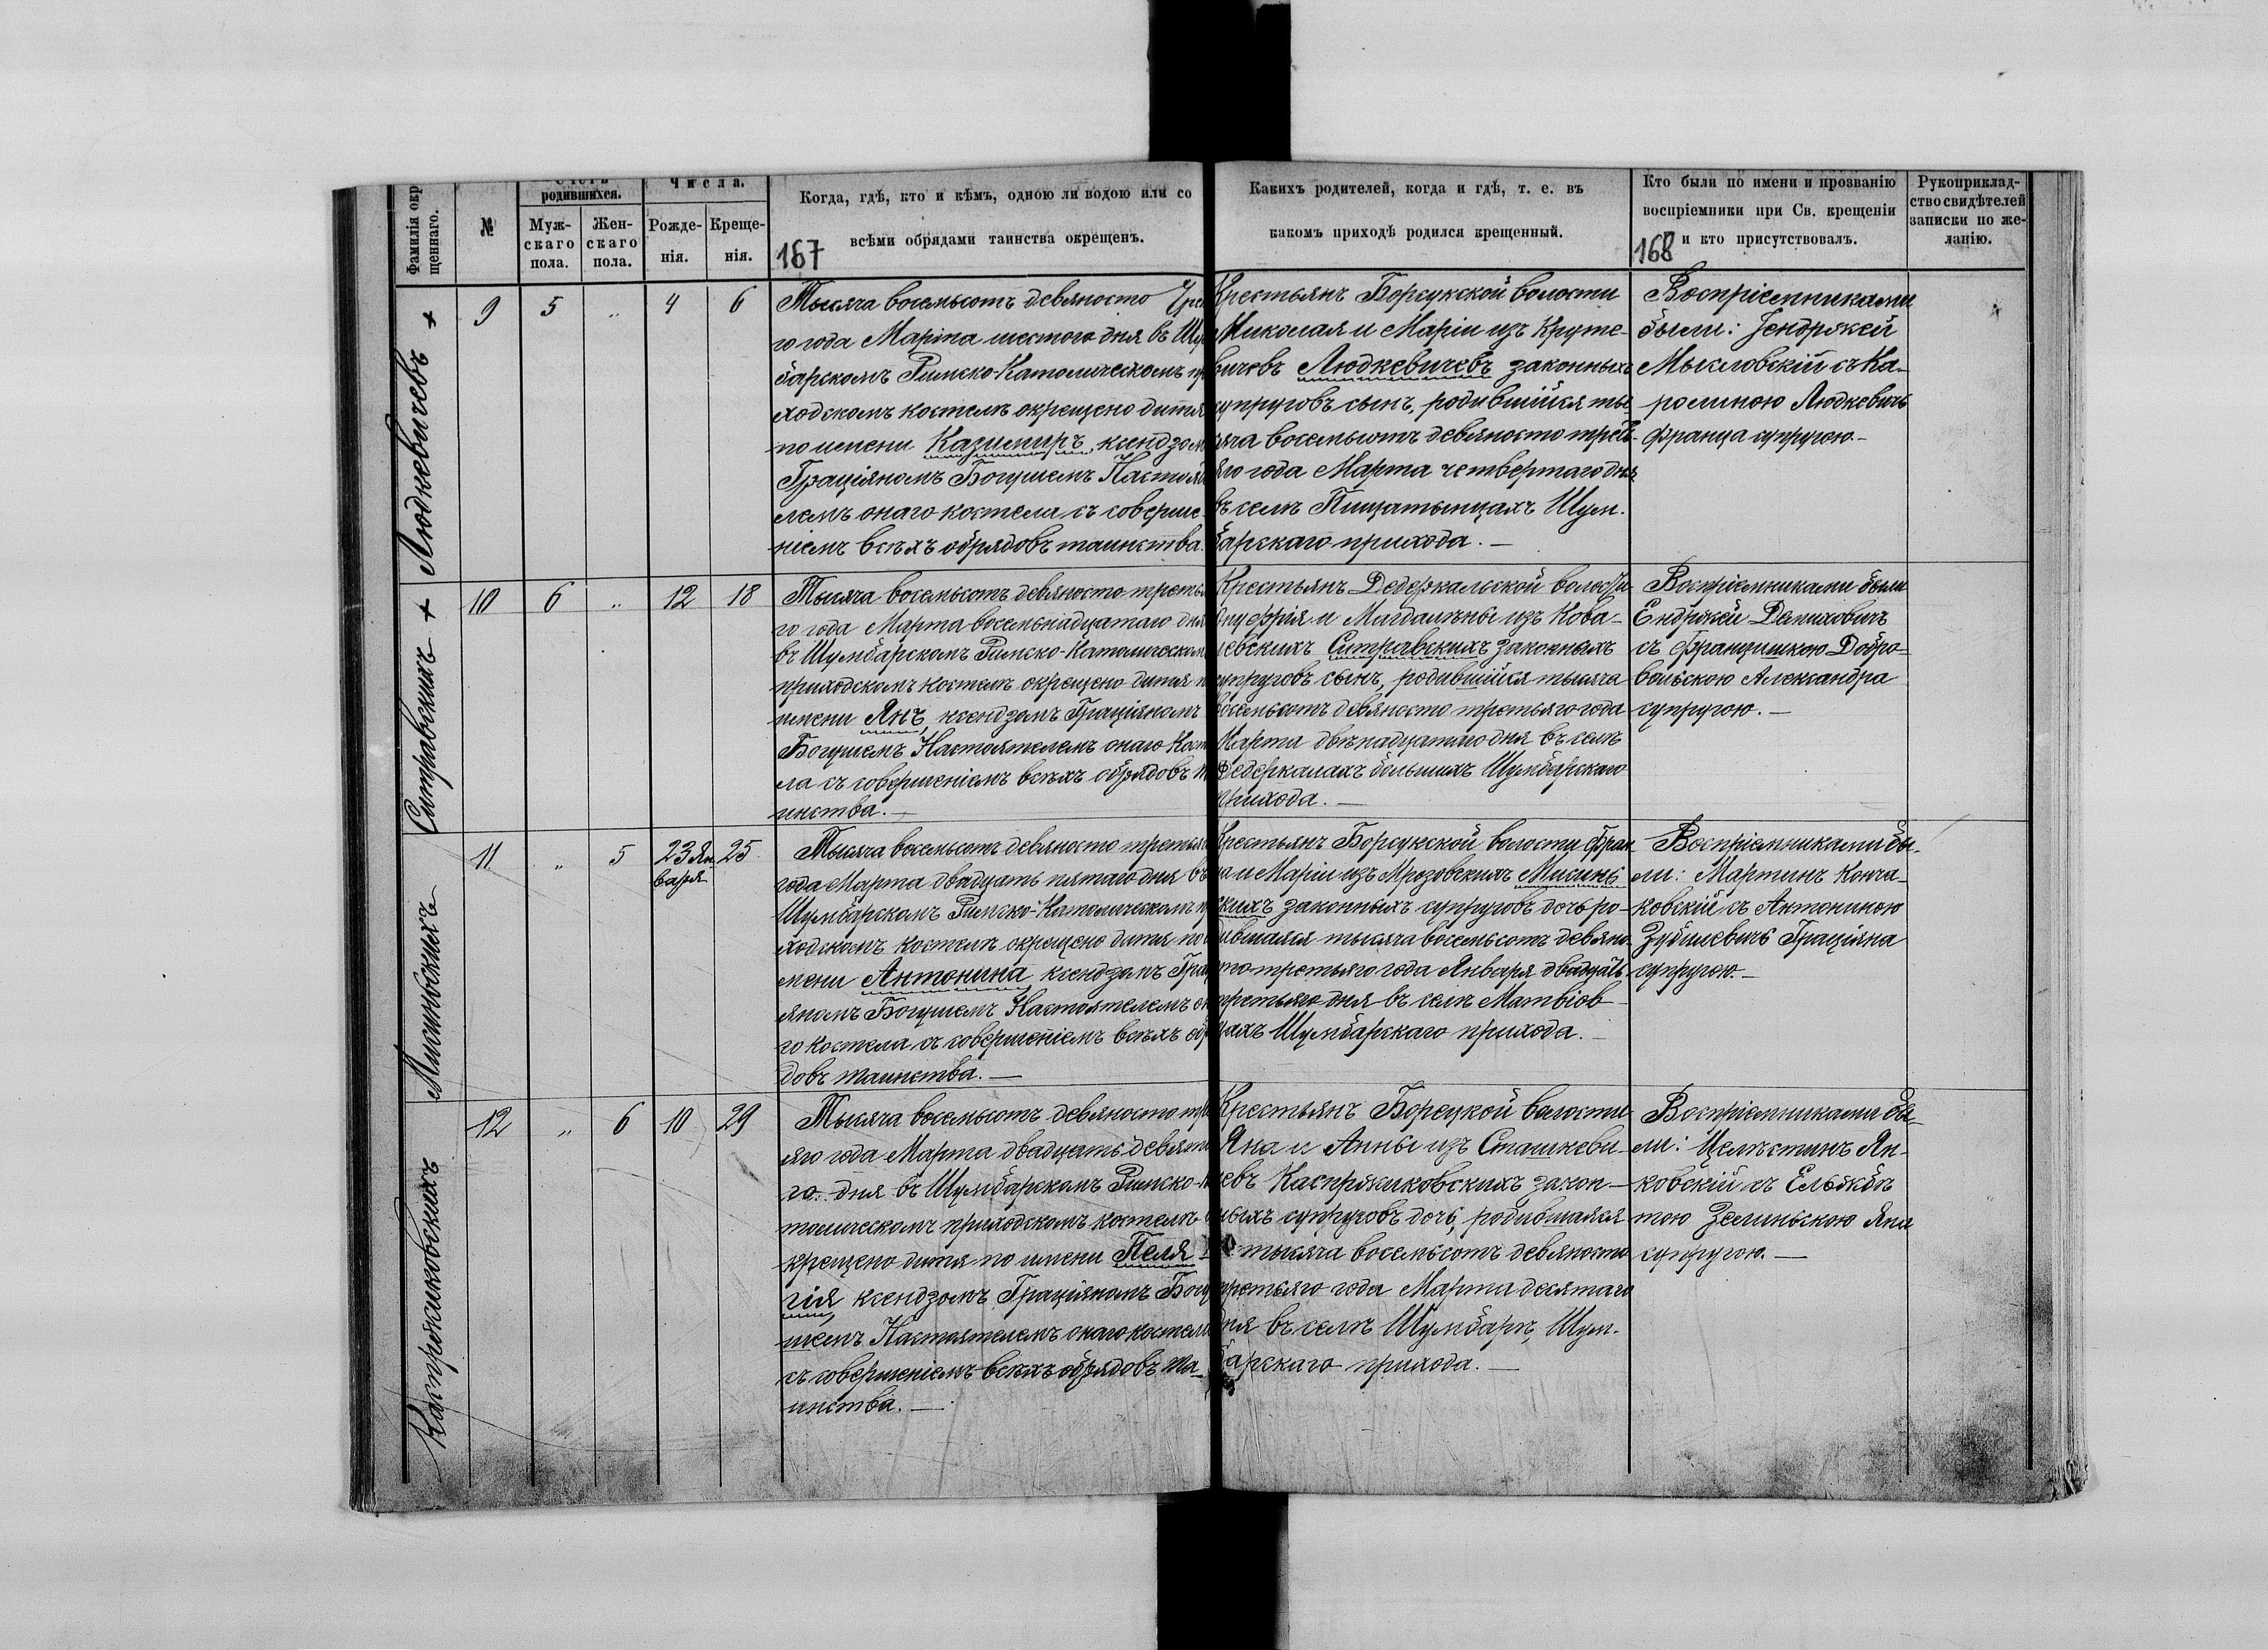 Фамилія окр
щеннаго.
№
Счетъ
родившихся.
Муж-
скаго
пола.
Жен-
скаго
пола.
Числа.
Рожде-
нія.
Креще-
нія.
Когда, гдѣ, кто и кѣмъ, одною ли водою или со
всѣми обрядами таинства окрещенъ.
167
Какихъ родителей, когда и гдѣ, т. е. въ
какомъ приходѣ родился крещенный.
Кто были по имени и прозванію
воспріемники при Св. крещеніи
и кто присутствовалъ.
168
Рукоприклад-
ство свидѣтелей
записки по же-
ланію.
Людкевичевъ +
9 5 „ 4 6
Тысяча восемьсотъ девяносто Тре
го года Марта шестого дня въ Шу
барскомъ Римско-Католическомъ пр
ходскомъ костелѣ окрещено дитя
по имени Казимиръ ксендзом
Граціяномъ Богушемъ Настоят
лемъ онаго костела съ соверше-
ніемъ всѣхъ обрядовъ таинства.
Крестьянъ Борсукской волости
Николая и Маріи изъ Круте-
вичевъ Людкевичевъ законныхъ
супруговъ сынъ, родившійся ты-
сяча восемьсотъ девяносто треть-
яго года Марта четвертаго дня
въ селѣ Пищатынцахъ Шум-
барскаго прихода. —
Воспріемниками
были: Јендржей
Мысловскій съ Ка-
ролиною Людкевичъ
Франца супругою. —
Ситравскихъ +
10 6 „ 12 18
Тысяча восемьсотъ девяносто треть
го года Марта восемьнадцатаго дня
въ Шумбарскомъ Римско-Католическом
приходскомъ костелѣ окрещено дитя п
имени Янъ, ксендзомъ Граціяномъ
Богушемъ Настоятелемъ онаго Кост
ла съ совершеніемъ всѣхъ обрядовъ т
инства. —
Крестьянъ Дедеркальской волости
Онуфрія и Магдалѣны изъ Кова-
левскихъ Ситравскихъ законныхъ
супруговъ сынъ, родившійся тысяча
восемьсотъ девяносто третьяго года
Марта двѣнадцатаго дня въ селѣ
Дедеркалахъ большихъ Шумбарскаго
прихода. —
Воспріемниками были
Ендржей Демиховичъ
съ Францишкою Добро-
вольскою Александра
супругою. —
Мисиньскихъ
11 „ 5 23 Ян 25
варя
Тысяча восемьсотъ девяносто третья
года Марта двадцать пятаго дня въ
Шумбарскомъ Римско-Католическомъ пр
ходскомъ костелѣ окрещено дитя по и
мени Антонина ксендзомъ Грац
яномъ Богушемъ Настоятелемъ он
го костела съ совершеніемъ всѣхъ обр
довъ таинства. —
Крестьянъ Борсукской волости Фран
ца и Маріи изъ Мрозовскихъ Мисинь
скихъ законныхъ супруговъ дочь ро-
дившаяся тысяча восемьсотъ девяно-
сто третьяго года Января двадцать
третьяго дня въ селѣ Матвіов-
цахъ Шумбарскаго прихода. —
Воспріемниками бы-
ли: Мартинъ Конча-
ковскій съ Антониною
Зубилевичъ Граціяна
супругою. —
Каспржиковскихъ
12 „ 6 10 29
Тысяча восемьсотъ девяносто тре
яго года Марта двадцать девята
го дня въ Шумбарскомъ Римско-К
толическомъ приходскомъ костелѣ о
крещено дитя по имени Пеля-
гія ксендзомъ Граціяномъ Богу
шемъ Настоятелемъ онаго костела
съ совершеніемъ всѣхъ обрядовъ та-
инства. —
Крестьянъ Борсукой волости
Яна и Анны изъ Сташкеви-
чевъ Каспржиковскихъ закон-
ныхъ супруговъ дочь, родившаяся
тысяча восемьсотъ девяносто
третьяго года Марта десятаго
дня въ селѣ Шумбарѣ, Шум-
барскаго прихода. —
Воспріемниками бы-
ли: Целѣстинъ Ян-
ковскій съ Ельжбѣ
тою Зелиньскою Яна
супругою. —